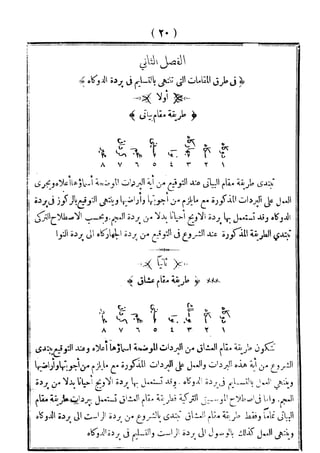 ( ٢٠ )
الفصل الثاني
﴿ فى طرق المقامات التى تنتهى بالتسليم فى بردة الدوكاه ﴾
أولا
﴿ طريقة مقام بياتى ﴾
دوكاه سيكاه نوا عجم
١ ٢ ٣ ٤ ٥ ٦ ٧ ٨
تبتدى طريقة مقام البياتى عند التوقيع من أية البردات الموضحة أسماؤها أعلاه ويجرى
العمل على البردات المذكورة مع مايلزم من أجوبتها وأراضيها وينتهى التوقيع بالركوز فى بردة
الدوكاه وقد تستعمل بها بردة الاويج أحيانا بدلا من بردة العجم. وبحسب الاصطلاح التركى
تبتدي الطريقة المذكورة عند الشروع فى التوقيع من بردة الجهاركاه الى بردة النوا
ثانيا
﴿ طريقة مقام عشاق ﴾
دوكاه سيكاه نوا عجم
١ ٢ ٣ ٤ ٥ ٦ ٧ ٨
تتكون طريقة مقام العشاق من البردات الموضحة اسماؤها أعلاه وعند التوقيع يبتدى
الشروع من أية هذه البردات والعمل على البردات المذكورة مع مايلزم من أجوبتها وأراضيها
وينتهى العمل بالتسليم فى بردة الدوكاه. وقد تستعمل بها بردة الاويج أحيانا بدلا من بردة
العجم. وأما فى اصطلاح الموسيقى التركية فطريقة مقام العشاق تستعمل بردات طريقة مقام
البياتى تماما وفقط طريقة مقام العشاق تبتدى بالشروع من بردة الراست الى بردة الدوكاه
وينتهى العمل كذلك بالوصول الى بردة الراست والتسليم فى بردة الدوكاه